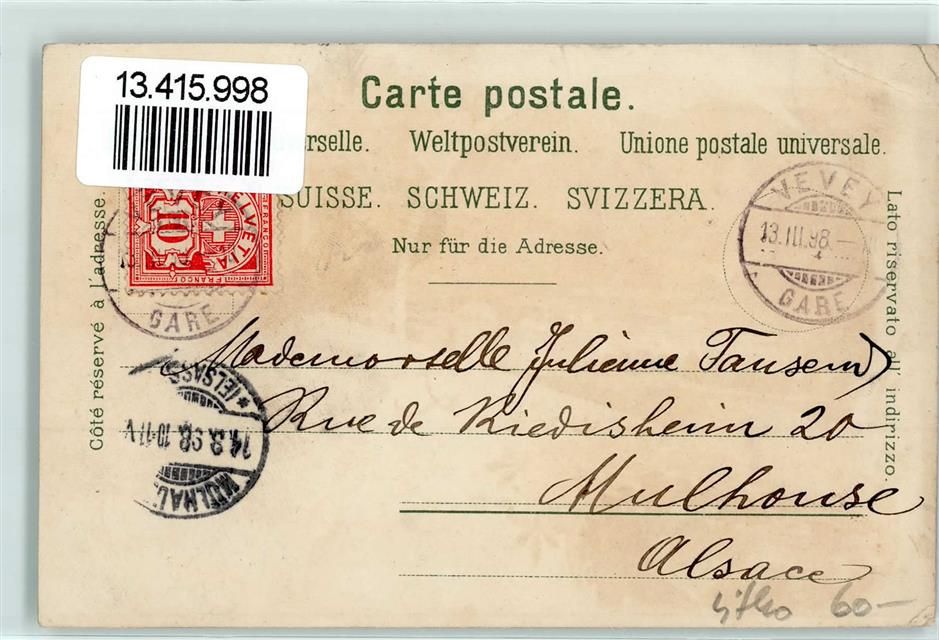 13.415.998
Carte postale.
erselle. Weltpostverein. Unione postale universale.
SUISSE. SCHWEIZ. SVIZZERA.
Nur für die Adresse.
Côté réservé à l'adresse.
Lato riservato all' indirizzo.
HELVETIA
FRANCO
10
GARE
VEVEY
13.III.98.–
GARE
Mademoiselle Julienne Tansem
Rue de Riedisheim 20
Mulhouse
Alsace
*(ELSASS)
14.3.98.10-11V
MÜLHAU
60–